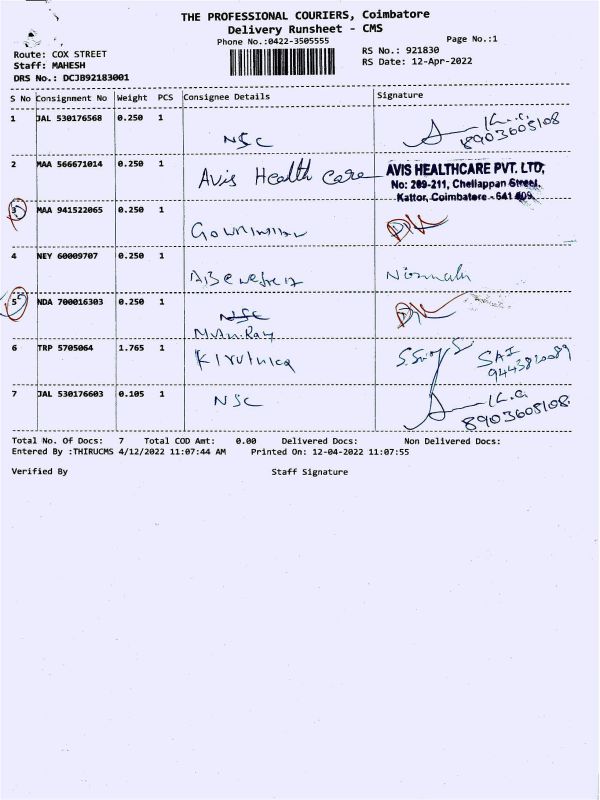 THE PROFESSIONAL COURIERS, Coimbatore
Delivery Runsheet - CMS
Phone No.:0422-3505555
Page No.:1
Route: COX STREET
RS No.: 921830
Staff: MAHESH
RS Date: 12-Apr-2022
DRS No.: DCJB92183001
S No Consignment No Weight PCS Consignee Details Signature
1 JAL 530176568 0.250 1
NSC 8903605108
2 MAA 566671014 0.250 1
Avis Health Care AVIS HEALTHCARE PVT. LTD,
No: 209-211, Chellappan Street,
Kattor, Coimbatore - 641 009.
3 MAA 941522065 0.250 1
4 NEY 60009707 0.250 1
5 NDA 700016303 0.250 1
NSC
6 TRP 5705064 1.765 1
SAI
9443820089
7 JAL 530176603 0.105 1
NSC 8903605108
Total No. Of Docs: 7 Total COD Amt: 0.00 Delivered Docs: Non Delivered Docs:
Entered By :THIRUCMS 4/12/2022 11:07:44 AM Printed On: 12-04-2022 11:07:55
Verified By Staff Signature